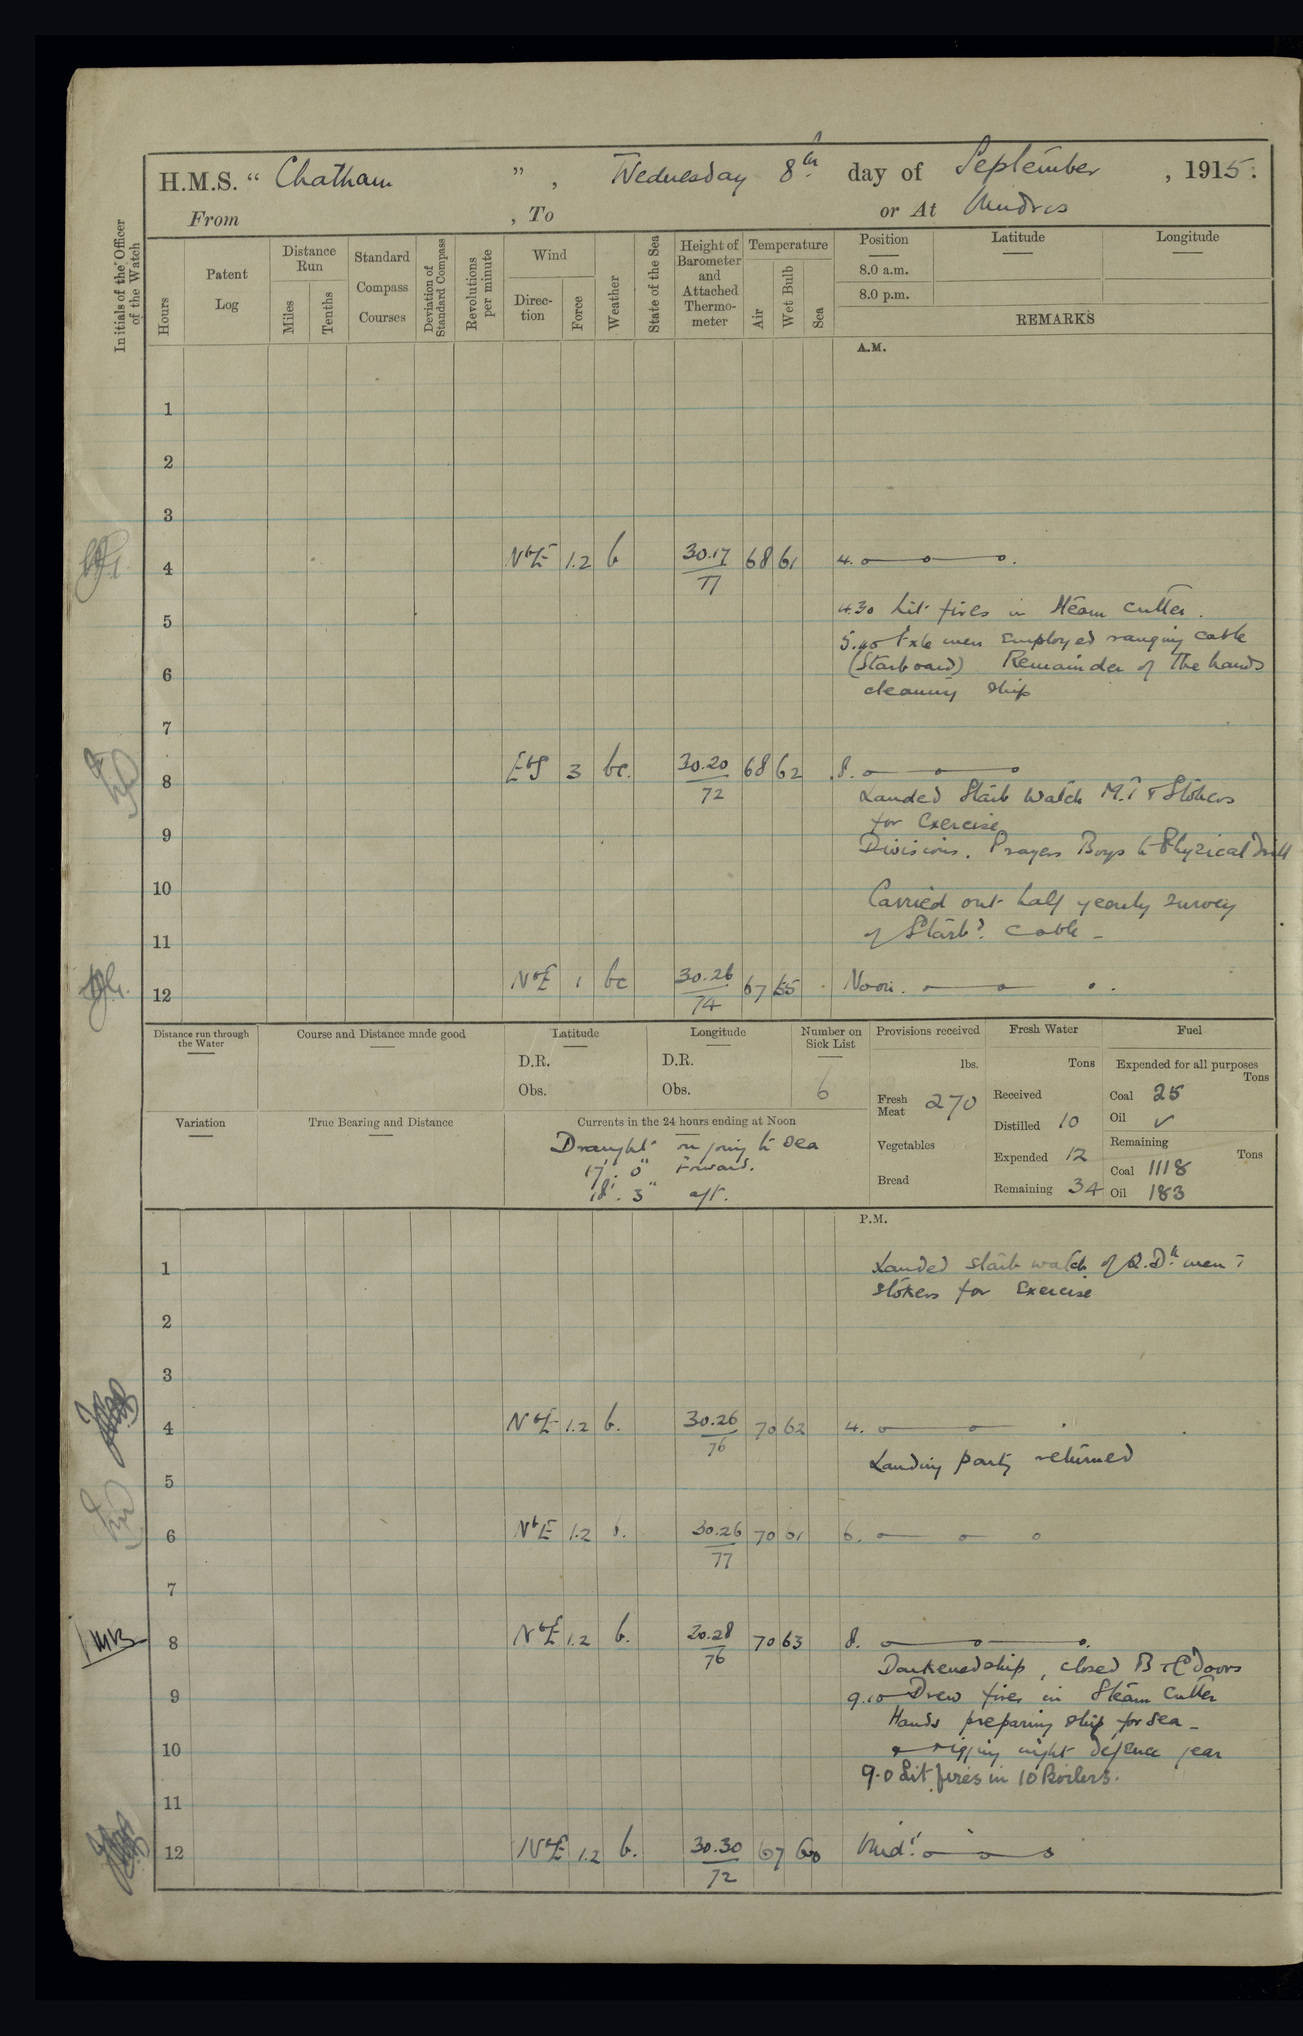 H.M.S. “ Chatham ” , Wednesday 8th day of September , 1915.
From , To or At Mudros
Initials of the Officer of the Watch
Hours
Patent Log
Distance Run
Miles
Tenths
Standard Compass Courses
Deviation of Standard Compass
Revolutions per minute
Wind
Direc-tion
Force
Weather
State of the Sea
Height of Barometer and Attached Thermo-meter
Temperature
Air
Wet Bulb
Sea
Position
8.0 a.m.
8.0 p.m.
Latitude
Longitude
REMARKS
A.M.
1
2
3
4 NbE 1.2 b 30.17/77 68 61 4.
4.30 Lit fires in Steam cutter.
5
5.40 men employed ranging cable
(Starboard) Remainder of the hands
6
cleaning ship
7
8 EbS 3 bc. 30.20/72 68 62 8.
Landed Starb Watch & Stokers
for Exercise
9
Divisions. Prayers Boys to Physical Drill
10
Carried out half yearly survey
of Starbd. Cable -
11
12 NbE 1 bc 30.26/74 67 55 Noon.
Distance run through the Water
Course and Distance made good
Latitude
D.R.
Obs.
Longitude
D.R.
Obs.
Number on Sick List
6
Provisions received
lbs.
Fresh Meat 270
Vegetables
Bread
Fresh Water
Tons
Received
Distilled 10
Expended 12
Remaining 34
Fuel
Expended for all purposes
Tons
Coal 25
Oil ✓
Remaining
Tons
Coal 1118
Oil 183
Variation
True Bearing and Distance
Currents in the 24 hours ending at Noon
Draught on going to sea
17' 0" Forward.
18' 3" aft.
P.M.
1
Landed starb watch of Q.Dk men &
stokers for Exercise
2
3
4 NbE 1.2 b. 30.26/76 70 62 4.
Landing party returned
5
6 NbE 1.2 b. 30.26/77 70 61 6.
7
8 NbE 1.2 b. 30.28/76 70 63 8.
Darkened ship, closed B & C doors
9
9.10 Drew fires in Steam Cutter
Hands preparing ship for sea -
10
& rigging night defence gear
9.0 Lit fires in 10 Boilers.
11
12 NbE 1.2 b. 30.30/72 67 60 Midt.